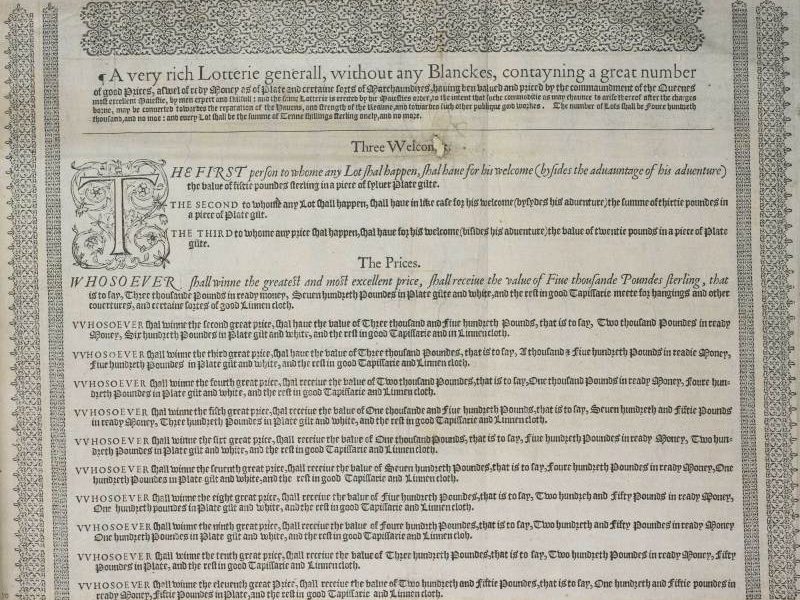 ¶A very rich Lotterie generall, without any Blanckes, contayning a great number
of good Prices, aswel of redy Money as of Plate and certaine sorts of Marchaundizes, hauing ben valued and priced by the commaundment of the Queenes
most excellent Maiestie, by men expert and skilfull: and the same Lotterie is erected by hir Maiesties order, to the intent that suche commoditie as may chaunce to arise therof after the charges
borne, may be conuerted towardes the reparation of the Hauens, and strength of the Realme, and towardes such other publique good workes. The number of Lots shall be Foure hundreth
thousand, and no mo: and euery Lot shall be the summe of Tenne shillings sterling onely, and no more.
Three
THE FIRST person to whome any Lot shal happen, shal haue for his welcome (bysides the aduauntage of his aduenture)
the value of fiftie poundes sterling in a piece of syluer Plate gilte.
THE SECOND to whome any Lot shall happen, shall haue in like case for his welcome (bysydes his aduenture) the summe of thirtie poundes in
a piece of Plate gilt.
THE THIRD to whome any price shal happen, shal haue for his welcome (bisides his aduenture) the value of twentie pounds in a piece of Plate
gilte.
The Prices.
WHOSOEVER shall winne the greatest and most excellent price, shall receiue the value of Fiue thousande Poundes sterling, that
is to say, Three thousande Pounds in ready money, Seuen hundreth Poundes in Plate gilte and white, and the rest in good Tapissarie meete for hangings and other
couertures, and certaine sortes of good Linnen cloth.
VVHOSOEVER shall winne the second great price, shal haue the value of Three thousand and Fiue hundreth Pounds, that is to say, Two thousand Poundes in ready
Money, Six hundreth Poundes in Plate gilt and white, and the rest in good Tapissarie and in Linnen cloth.
VVHOSOEVER shall winne the third great price, shal haue the value of Three thousand Poundes, that is to say, A thousand & Fiue hundreth Pounds in readie Money,
Fiue hundreth Poundes in Plate gilt & white, and the rest in good Tapissarie and Linnen cloth.
VVHOSOEVER shall winne the fourth great price, shal receiue the value of Two thousand poundes, that is to say, One thousand Pounds in ready Money, Foure hun-
dreth Poundes in Plate gilt and white, and the rest in good Tapissarie and Linnen cloth.
VVHOSOEVER shal winne the fifth great price, shal receiue the value of One thousande and Fiue hundreth Poundes, that is to say, Seuen hundreth and Fiftie Pounds
in ready Money, Three hundreth Pounds in Plate gilt and white, and the rest in good Tapissarie and Linnen cloth.
VVHOSOEVER shall winne the sixt great price, shall receiue the value of One thousand Pounds, that is to say, Fiue hundreth Pounds in ready Money, Two hun-
dreth Pounds in Plate gilt and white, and the rest in good Tapissarie and Linnen cloth.
VVHOSOEVER shall winne the seuenth great price, shall receiue the value of Seuen hundreth Poundes, that is to say, Foure hundreth Pounds in ready Money, One
hundreth Poundes in Plate gilt and white, and the rest in good Tapissarie and Linnen cloth.
VVHOSOEVER shall winne the eight great price, shall receiue the value of Fiue hundreth Poundes, that is to say, Two hundreth and Fifty Pounds in ready Money,
One hundreth poundes in Plate gilt and white, and the rest in good Tapissarie and Linnen cloth.
VVHOSOEVER shall winne the ninth great price, shall receiue the value of Foure hundreth Poundes, that is to say, Two hundreth and Fifty Pounds in ready Money
One hundreth Poundes in Plate gilt and white, and the rest in good Tapissarie and Linnen cloth.
VVHOSOEVER shall winne the tenth great price, shall receiue the value of Three hundreth Poundes, that is to say, Two hundreth Pounds in ready Money, Fifty
Poundes in Plate, and the rest in good Tapissarie and Linnen cloth.
VVHOSOEVER shall winne the eleuenth great Price, shall receiue the value of Two hundreth and Fiftie Poundes, that is to say, One hundreth and Fiftie poundes in
ready Money, Fiftie Poundes in Plate, and the rest in good Tapissarie and Linnen cloth.